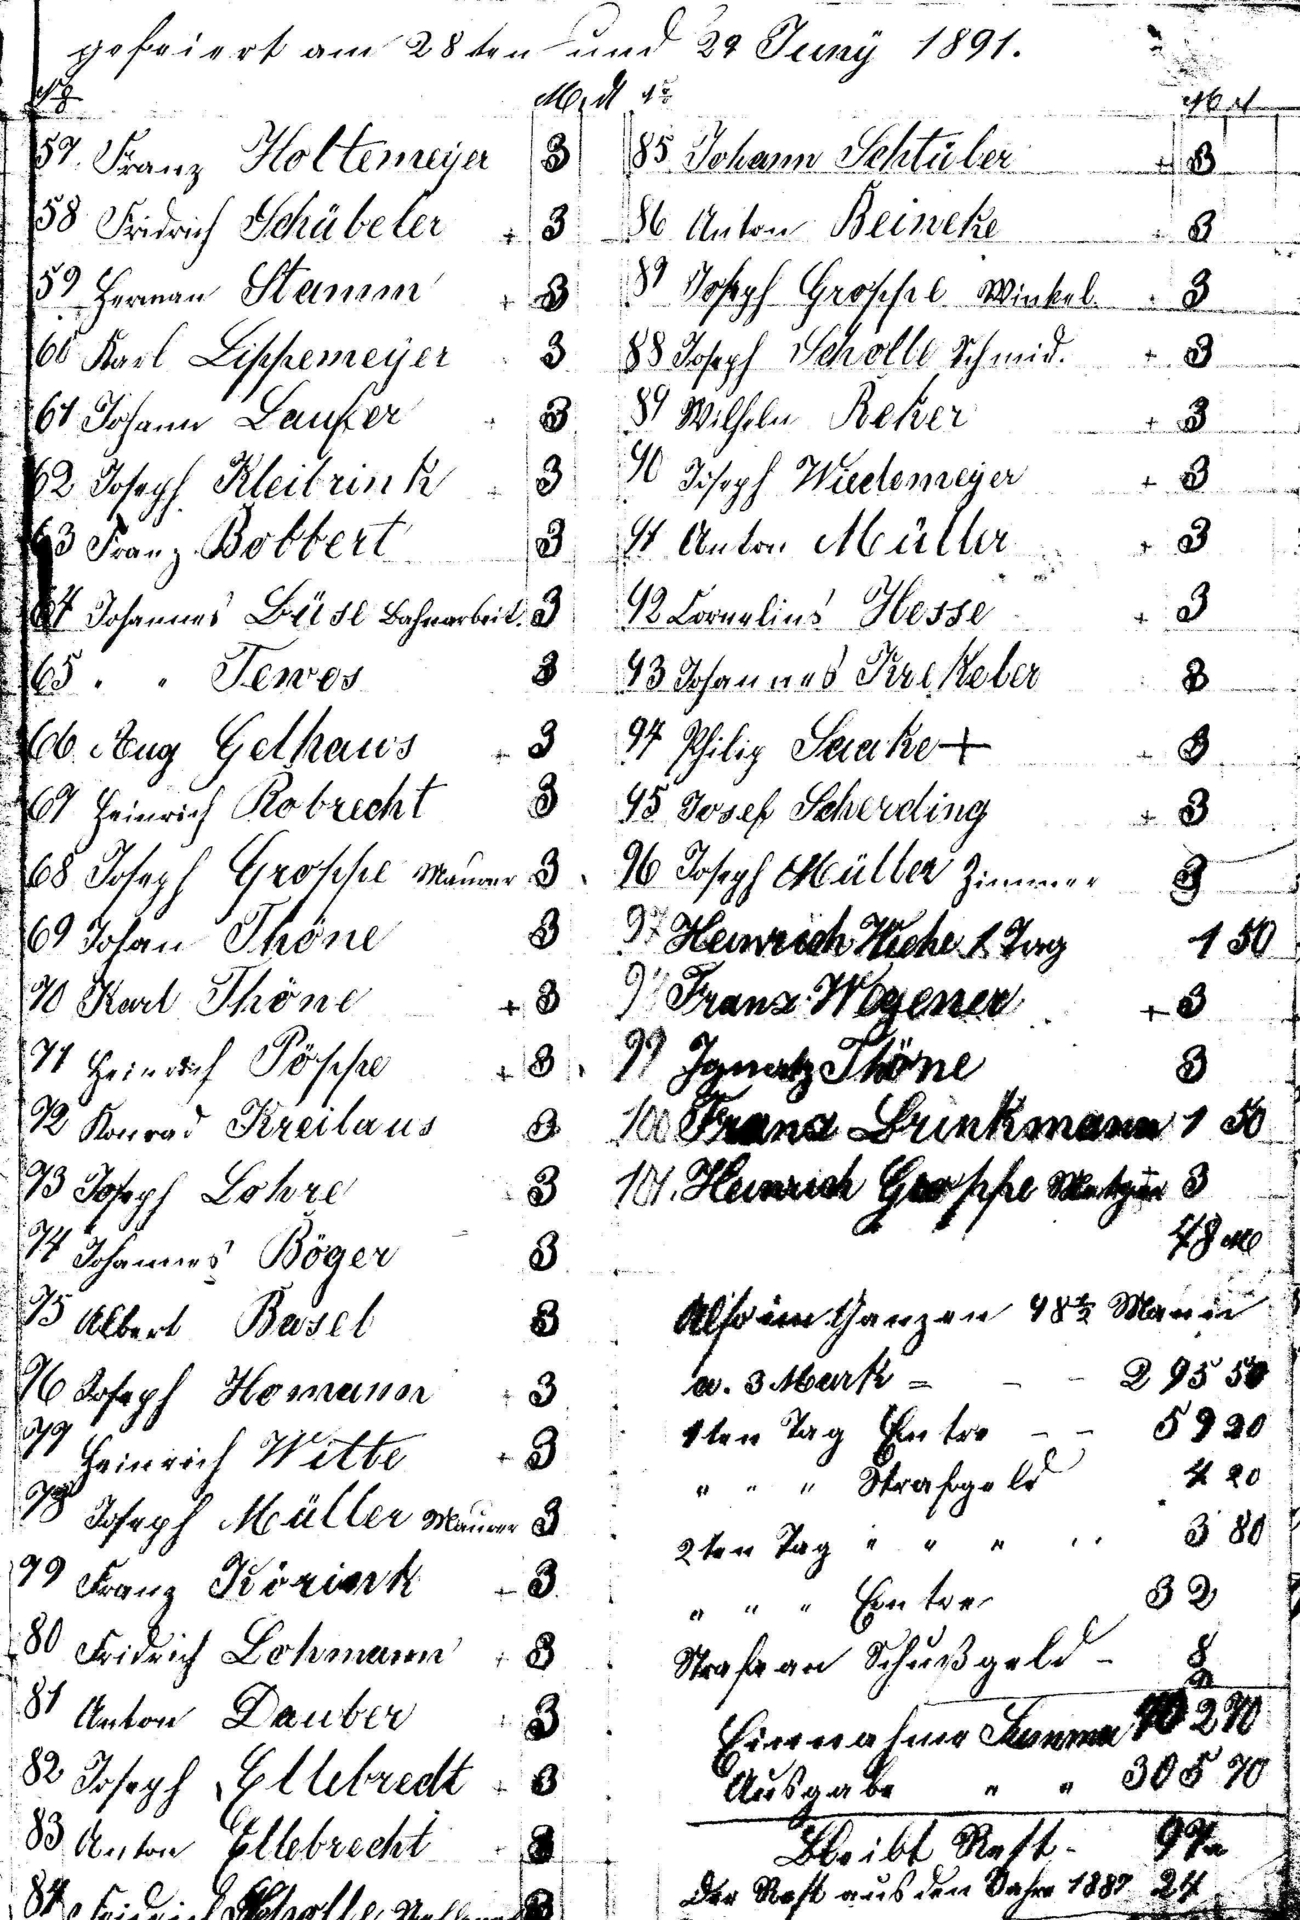 gefeiert am 28ten und 29 Juny 1891.
No M. d
57. Franz Holtemeyer 3
58 Fridrich Schübeler + 3
59 Herman Stamm + 3
60 Karl Lippemeyer 3
61 Johann Laufer 3
62 Joseph Kleibrink 3
63 Franz Bobbert 3
64 Johannes Büse Bahnarbeit. 3
65 " " Tewes 3
66 Aug Gelhaus + 3
67 Heinrich Robrecht 3
68 Joseph Groppe Maurer 3
69 Johan Thöne 3
70 Karl Thöne + 3
71 Heinrich Pöppe + 3
72 Konrad Kreilaus 3
73 Joseph Lohre 3
74 Johannes Böger 3
75 Albert Basel 3
76 Joseph Homann 3
77 Heinrich Witte + 3
78 Joseph Müller Maurer 3
79 Franz Körink + 3
80 Fridrich Lohmann 3
81 Anton Dauber 3
82 Joseph Ellebrecht + 3
83 Anton Ellebrecht 3
84 Fridrich Scholle 3
No M d
85 Johann Schtüler + 3
86 Anton Beineke 3
87 Joseph Groppe Winkel. 3
88 Joseph Scholle Schmid. + 3
89 Wilhelm Reker + 3
90 Joseph Wiedemeyer + 3
91 Anton Müller + 3
92 Cornelius Hesse + 3
93 Johannes Krekeler 3
94 Philip Saake + 3
95 Josef Scherding + 3
96 Joseph Müller Zimmer 3
97 Heinrich Wiehe 1 Tag 1 50
98 Franz Wegener + 3
99 Ignatz Thöne 3
100 Franz Brinkmann 1 50
101. Heinrich Groppe Metzger 3
48 M
Also im Ganzen 98 1/2 Mann
a. 3 Mark = - - 295 50
1ten Tag Entre - - 59 20
" " " Strafgeld 4 20
2ten Tag " " " 3 80
" " " Entre 32
Strafe an Schußgeld - 8
Einnahme Summa 402 70
Ausgabe " " 305 70
Bleibt Rest - 97
Der Rest aus den Jahre 1887 24